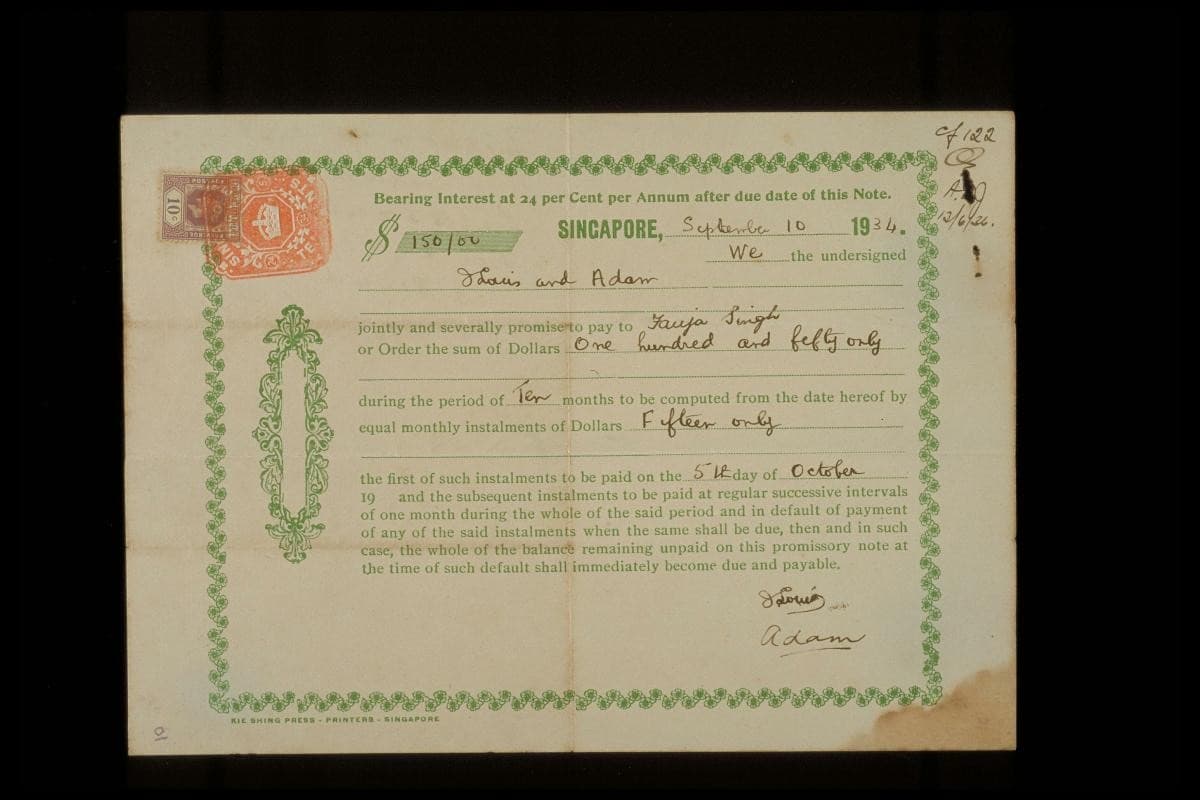 cf 122
12/6/26.
POSTAGE
10 c
REVENUE
Bearing Interest at 24 per Cent per Annum after due date of this Note.
$ 150/00 SINGAPORE, September 10 1934.
We the undersigned
J Louis and Adam
jointly and severally promise to pay to Fauja Singh
or Order the sum of Dollars One hundred and fefty only
during the period of Ten months to be computed from the date hereof by
equal monthly instalments of Dollars Fifteen only
the first of such instalments to be paid on the 5th day of October
19 and the subsequent instalments to be paid at regular successive intervals
of one month during the whole of the said period and in default of payment
of any of the said instalments when the same shall be due, then and in such
case, the whole of the balance remaining unpaid on this promissory note at
the time of such default shall immediately become due and payable.
J Louis
Adam
KIE SHING PRESS - PRINTERS - SINGAPORE